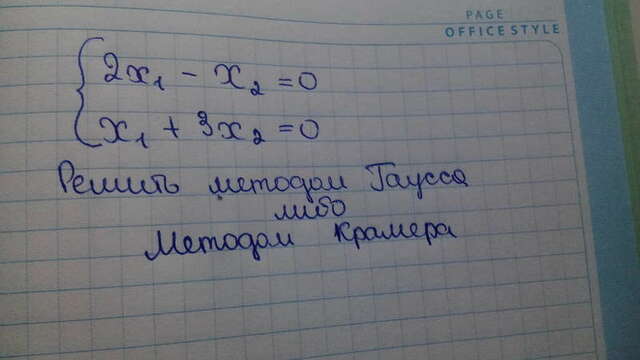 PAGE
OFFICE STYLE
2x₁ - x₂ = 0
x₁ + 3x₂ = 0
Решить методом Гаусса
либо
Методом Крамера